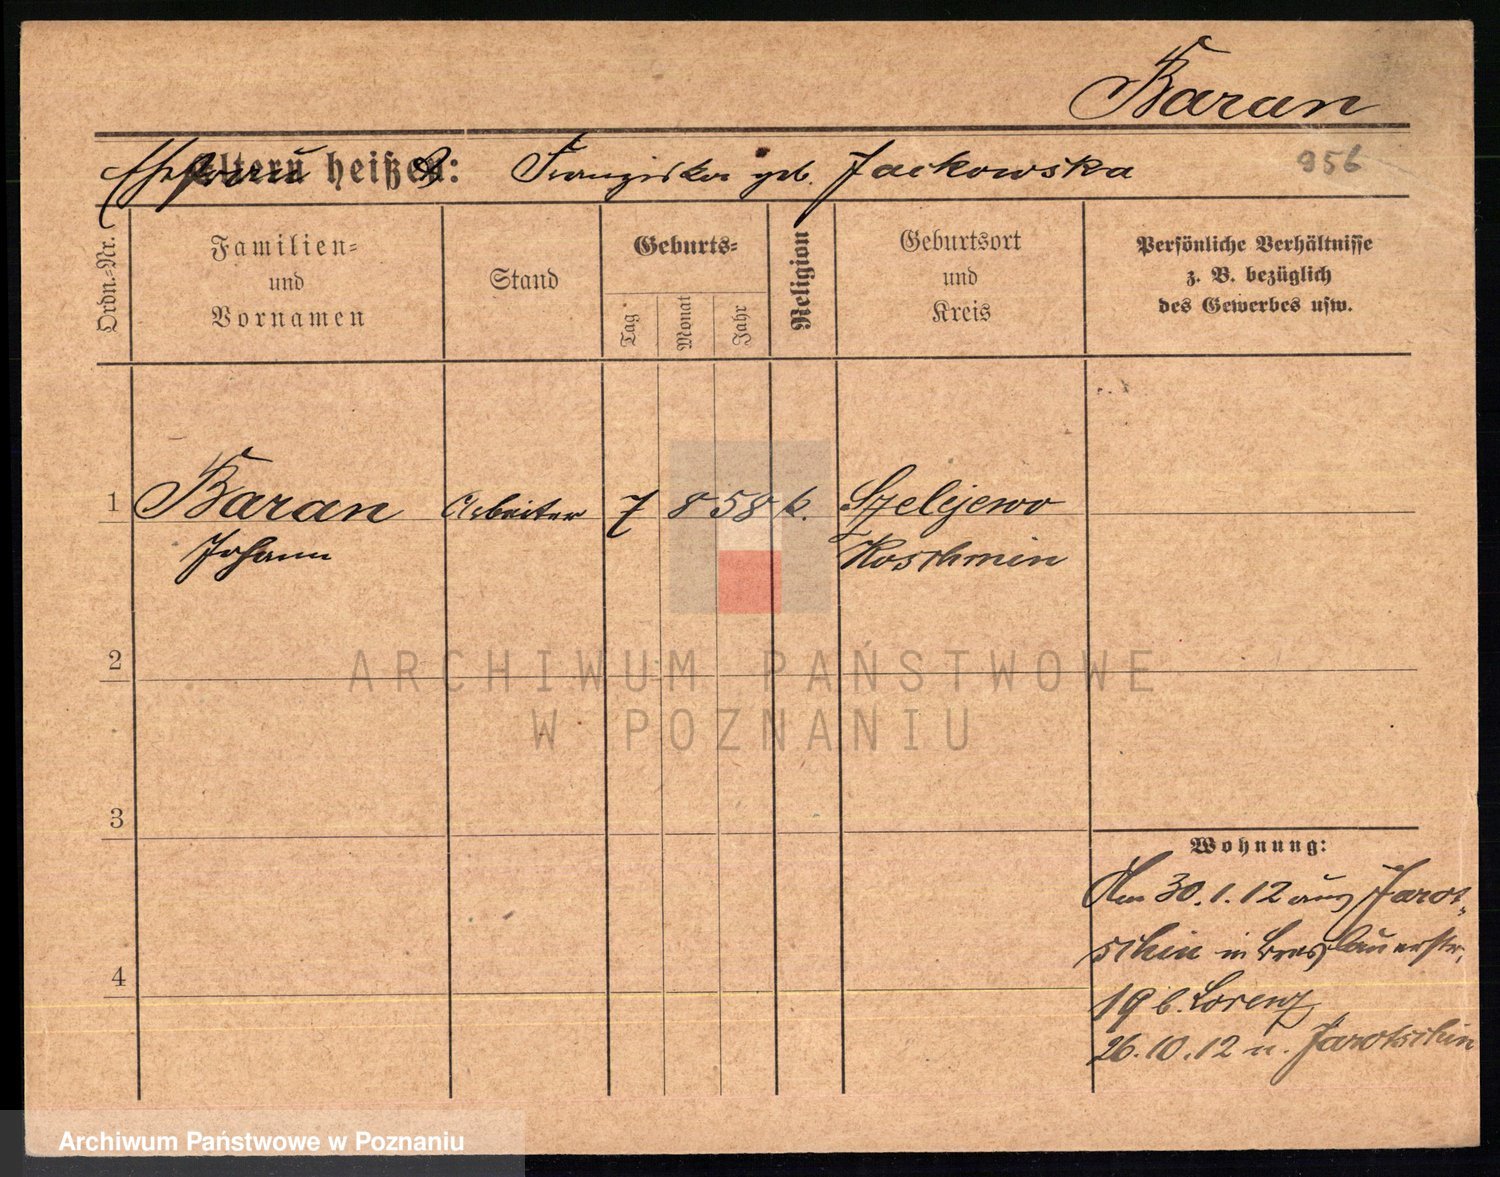 Baran
Ehefrau
Eltern heißen: Franziska geb. Jackowska 956
Ordn.-Nr.
Familien-
und
Vornamen
Stand
Geburts-
Tag
Monat
Jahr
Religion
Geburtsort
und
Kreis
Persönliche Verhältnisse
z. B. bezüglich
des Gewerbes usw.
1 Baran Arbeiter 7 8 58 k. Szelejewo
Johann Koschmin
2
ARCHIWUM PAŃSTWOWE
W POZNANIU
3
Wohnung:
Am 30.1.12 aus Jarot-
schin in Breslauerstr.
4
19 b. Lorenz
26.10.12 n. Jarotschin
Archiwum Państwowe w Poznaniu